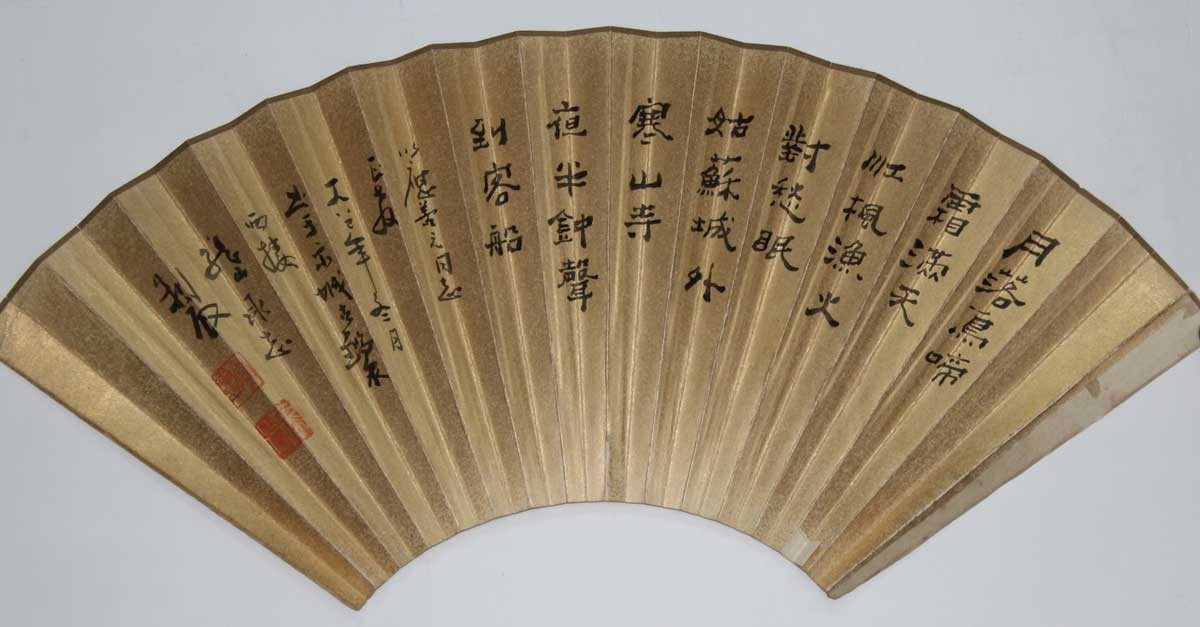 月落烏啼
霜滿天
江楓漁火
對愁眠
姑蘇城外
寒山寺
夜半鐘聲
到客船
以應善元同志
正之
年冬月